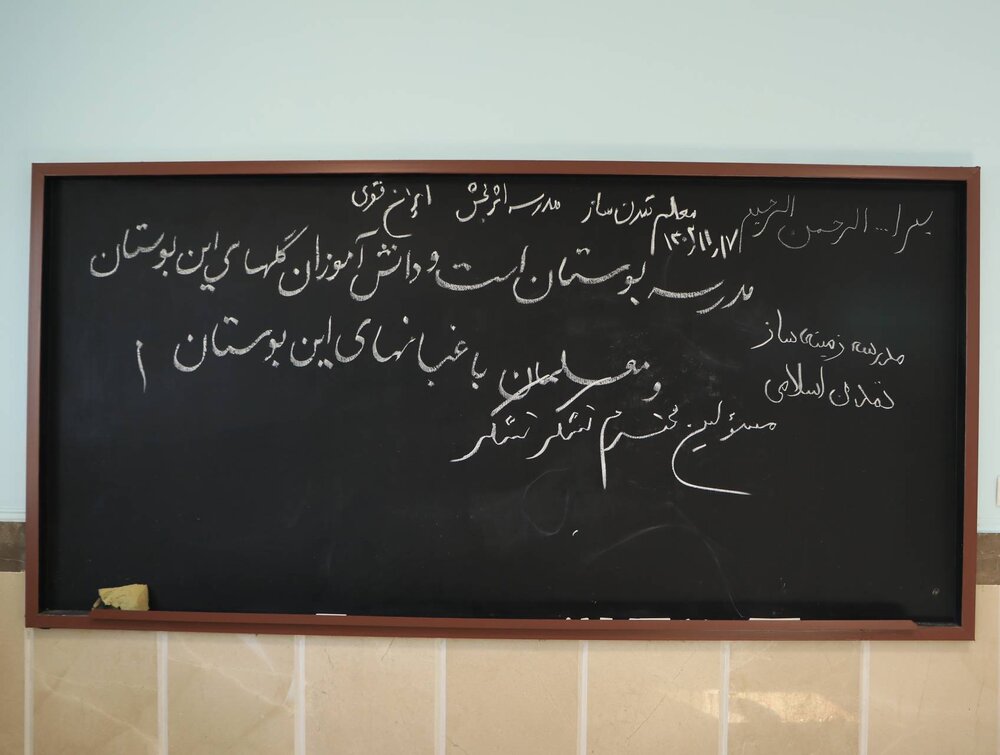 بسم ا... الرحمن الرحیم
معلم تمدن ساز مدرسه اثربخش ایران قوی
۱۴۰۲٫۱۱٫۱۷
مدرسه بوستان است و دانش آموزان گلهای این بوستان
و معلمان باغبانهای این بوستان
مدرسه زمینه ساز
تمدن اسلامی
مسئولین محترم تشکر تشکر